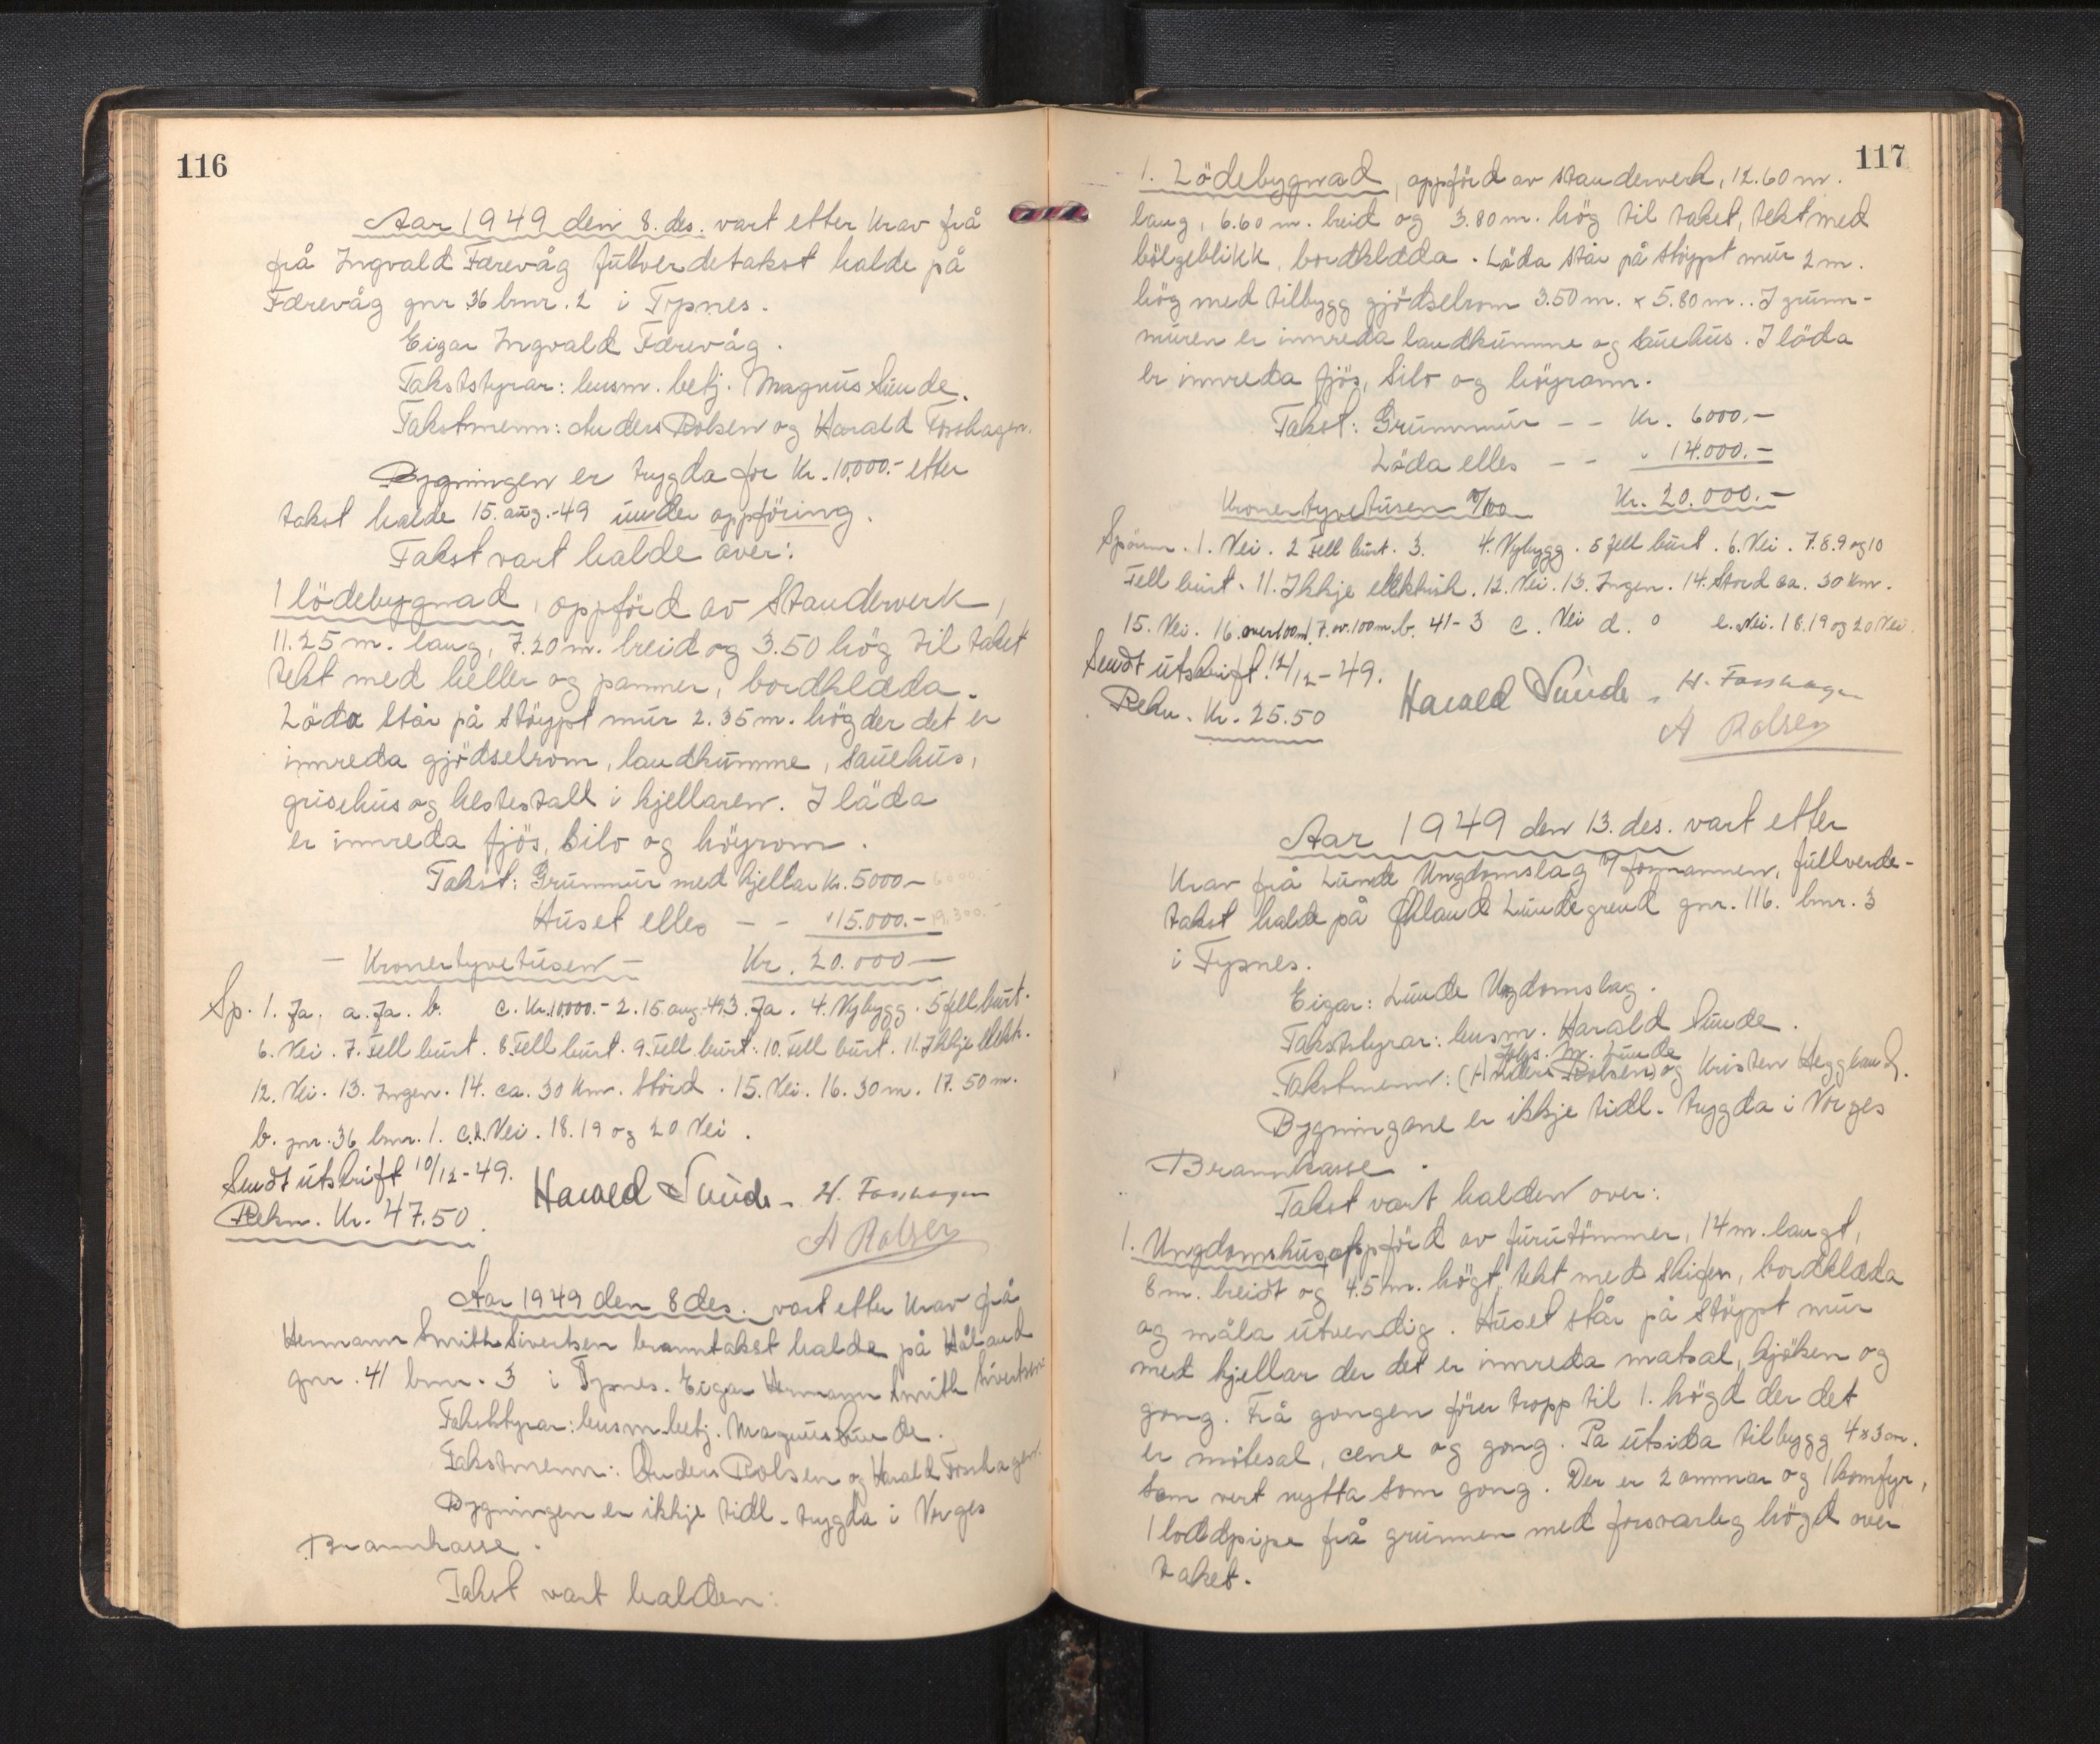 116
Aar 1949 den 8. des. vart etter krav frå
frå Ingvald Færevåg fullverdetakst halde på
Færevåg gnr 36 bnr. 2 i Tysnes.
Eigar Ingvald Færevåg.
Takststyrar: lensm. betj. Magnus Sunde.
Takstmenn: Anders Rolsen og Harald Fosshagen.
Bygningen er trygda for Kr. 10,000.- etter
takst halde 15. aug.-49 under oppföring.
Takst vart halde over:
1 lödebygnad, oppförd av Standerverk,
11.25 m. lang, 7.20 m. breid og 3.50 hög til taket
tekt med heller og panner, bordklæda.
Löda står på stöypt mur 2.35 m. hög der det er
innreda gjödselrom, landkumme, sauehus,
grisehus og hestestall i kjellaren. I löda
er innreda fjös, silo og höyrom.
Takst: Grunnmur med kjellar Kr. 5000.- 6000.-
Huset elles - - " 15.000.- 19.300.-
- Kronertyvetusen - Kr. 20.000 -
Sp. 1. Ja. a. Ja. b. c. Kr. 10,000.- 2. 15. aug.-49 3. Ja. 4. Nybygg. 5 fell burt.
6. Nei. 7. Fell burt. 8. Fell burt. 9. Fell burt. 10. Fell burt. 11. Ikkje elekt.
12. Nei. 13. Ingen. 14. ca. 30 km. Stord. 15. Nei. 16. 30 m. 17. 50 m.
b. gnr. 36 bnr. 1. c.d. Nei. 18. 19 og 20 Nei.
Sendt utskrift 10/12-49.
Rekn. Kr. 47.50.
Harald Sunde - H. Fosshagen
A Rolsen
Aar 1949 den 8 des. vart etter krav frå
Hermann Smith Sivertsen branntakst halde på Håland
gnr. 41 bnr. 3 i Tysnes. Eigar Hermann Smith Sivertsen
Takststyrar: lensm. betj. Magnus Sunde.
Takstmenn: Anders Rolsen og Harald Fosshagen.
Bygningen er ikkje tidl. trygda i Norges
Brannkasse.
Takst vart halden:
117
1. Lödebygnad, oppförd av standerverk, 12.60 m.
lang, 6.60 m. breid og 3.80 m. hög til taket, tekt med
bölgeblikk, bordklæda. Löda står på stöypt mur 2 m.
hög med tilbygg gjödselrom 3.50 m. x 5.80 m.. I grunn-
muren er innreda landkumme og sauehus. I löda
er innreda fjös, silo og höyrom.
Takst: Grunnmur - - Kr. 6000.-
Löda elles - - " 14.000.-
Kronertyvetusen 00/100 Kr. 20.000.-
Spörsm. 1. Nei. 2 Fell burt. 3. 4. Nybygg. 5 fell burt. 6. Nei. 7. 8. 9 og 10
Fell burt. 11. Ikkje elektrisk. 12. Nei. 13. Ingen. 14. Stord ca. 30 km.
15. Nei. 16. over 100 m. 17. ov. 100 m. b. 41-3 c. Nei d. o e. Nei. 18. 19 og 20 Nei.
Sendt utskrift 12/12-49.
Rekn. Kr. 25.50
Harald Sunde - H. Fosshagen
A Rolsen
Aar 1949 den 13. des. vart etter
krav frå Lunde Ungdomslag v/ formannen, fullverde-
takst halde på Lundegrend gnr. 116. bnr. 3
i Tysnes.
Eigar: Lunde Ungdomslag.
Takststyrar: lensm. Harald Sunde.
Johs. M. Lunde
Takstmenn: (Anders Rolsen) og Kristen Heggland.
Bygningane er ikkje tidl. trygda i Norges
Brannkasse.
Takst vart halden over:
1. Ungdomshus, oppförd av furutömmer, 14 m. langt,
8 m. breidt og 4.5 m. högt, tekt med skifer, bordklæda
og måla utvendig. Huset står på stöypt mur
med kjellar der det er innreda matsal, kjöken og
gong. Frå gongen förer tropp til 1. högd der det
er mötesal, cene og gong. På utsida tilbygg 4 x 3 m.
som vert nytta som gong. Der er 2 omnar og 1 komfyr,
1 loddpipe frå grunnen med forsvarleg högd over
taket.